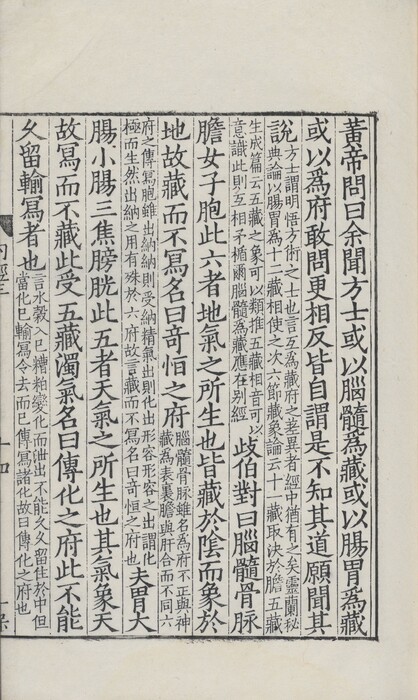 黃帝問曰余聞方士或以腦髓爲藏或以腸胃爲藏
或以爲府敢問更相反皆自謂是不知其道願聞其
說方士謂明悟方術之士也言互爲藏府之差異者經中猶有之矣靈蘭秘典論以腸胃爲十二藏相使之次六節藏象論云十一藏取決於膽五藏
生成篇云五藏之象可以類推五藏相音可以意識此則互相矛楯爾腦髓爲藏應在别經歧伯對曰腦髓骨脉
膽女子胞此六者地氣之所生也皆藏於陰而象於
地故藏而不寫名曰奇恒之府腦髓骨脉雖名爲府不正與神藏爲表裏膽與肝合而不同六
府之傳寫胞雖出納納則受納精氣出則化出形容形容之出謂化極而生然出納之用有殊於六府故言藏而不寫名曰奇恒之府也夫胃大
腸小腸三焦膀胱此五者天氣之所生也其氣象天
故寫而不藏此受五藏濁氣名曰傳化之府此不能
久留輸寫者也言水穀入已糟粕變化而泄出不能久久留住於中但當化已輸寫令去而已傳寫諸化故曰傳化之府也